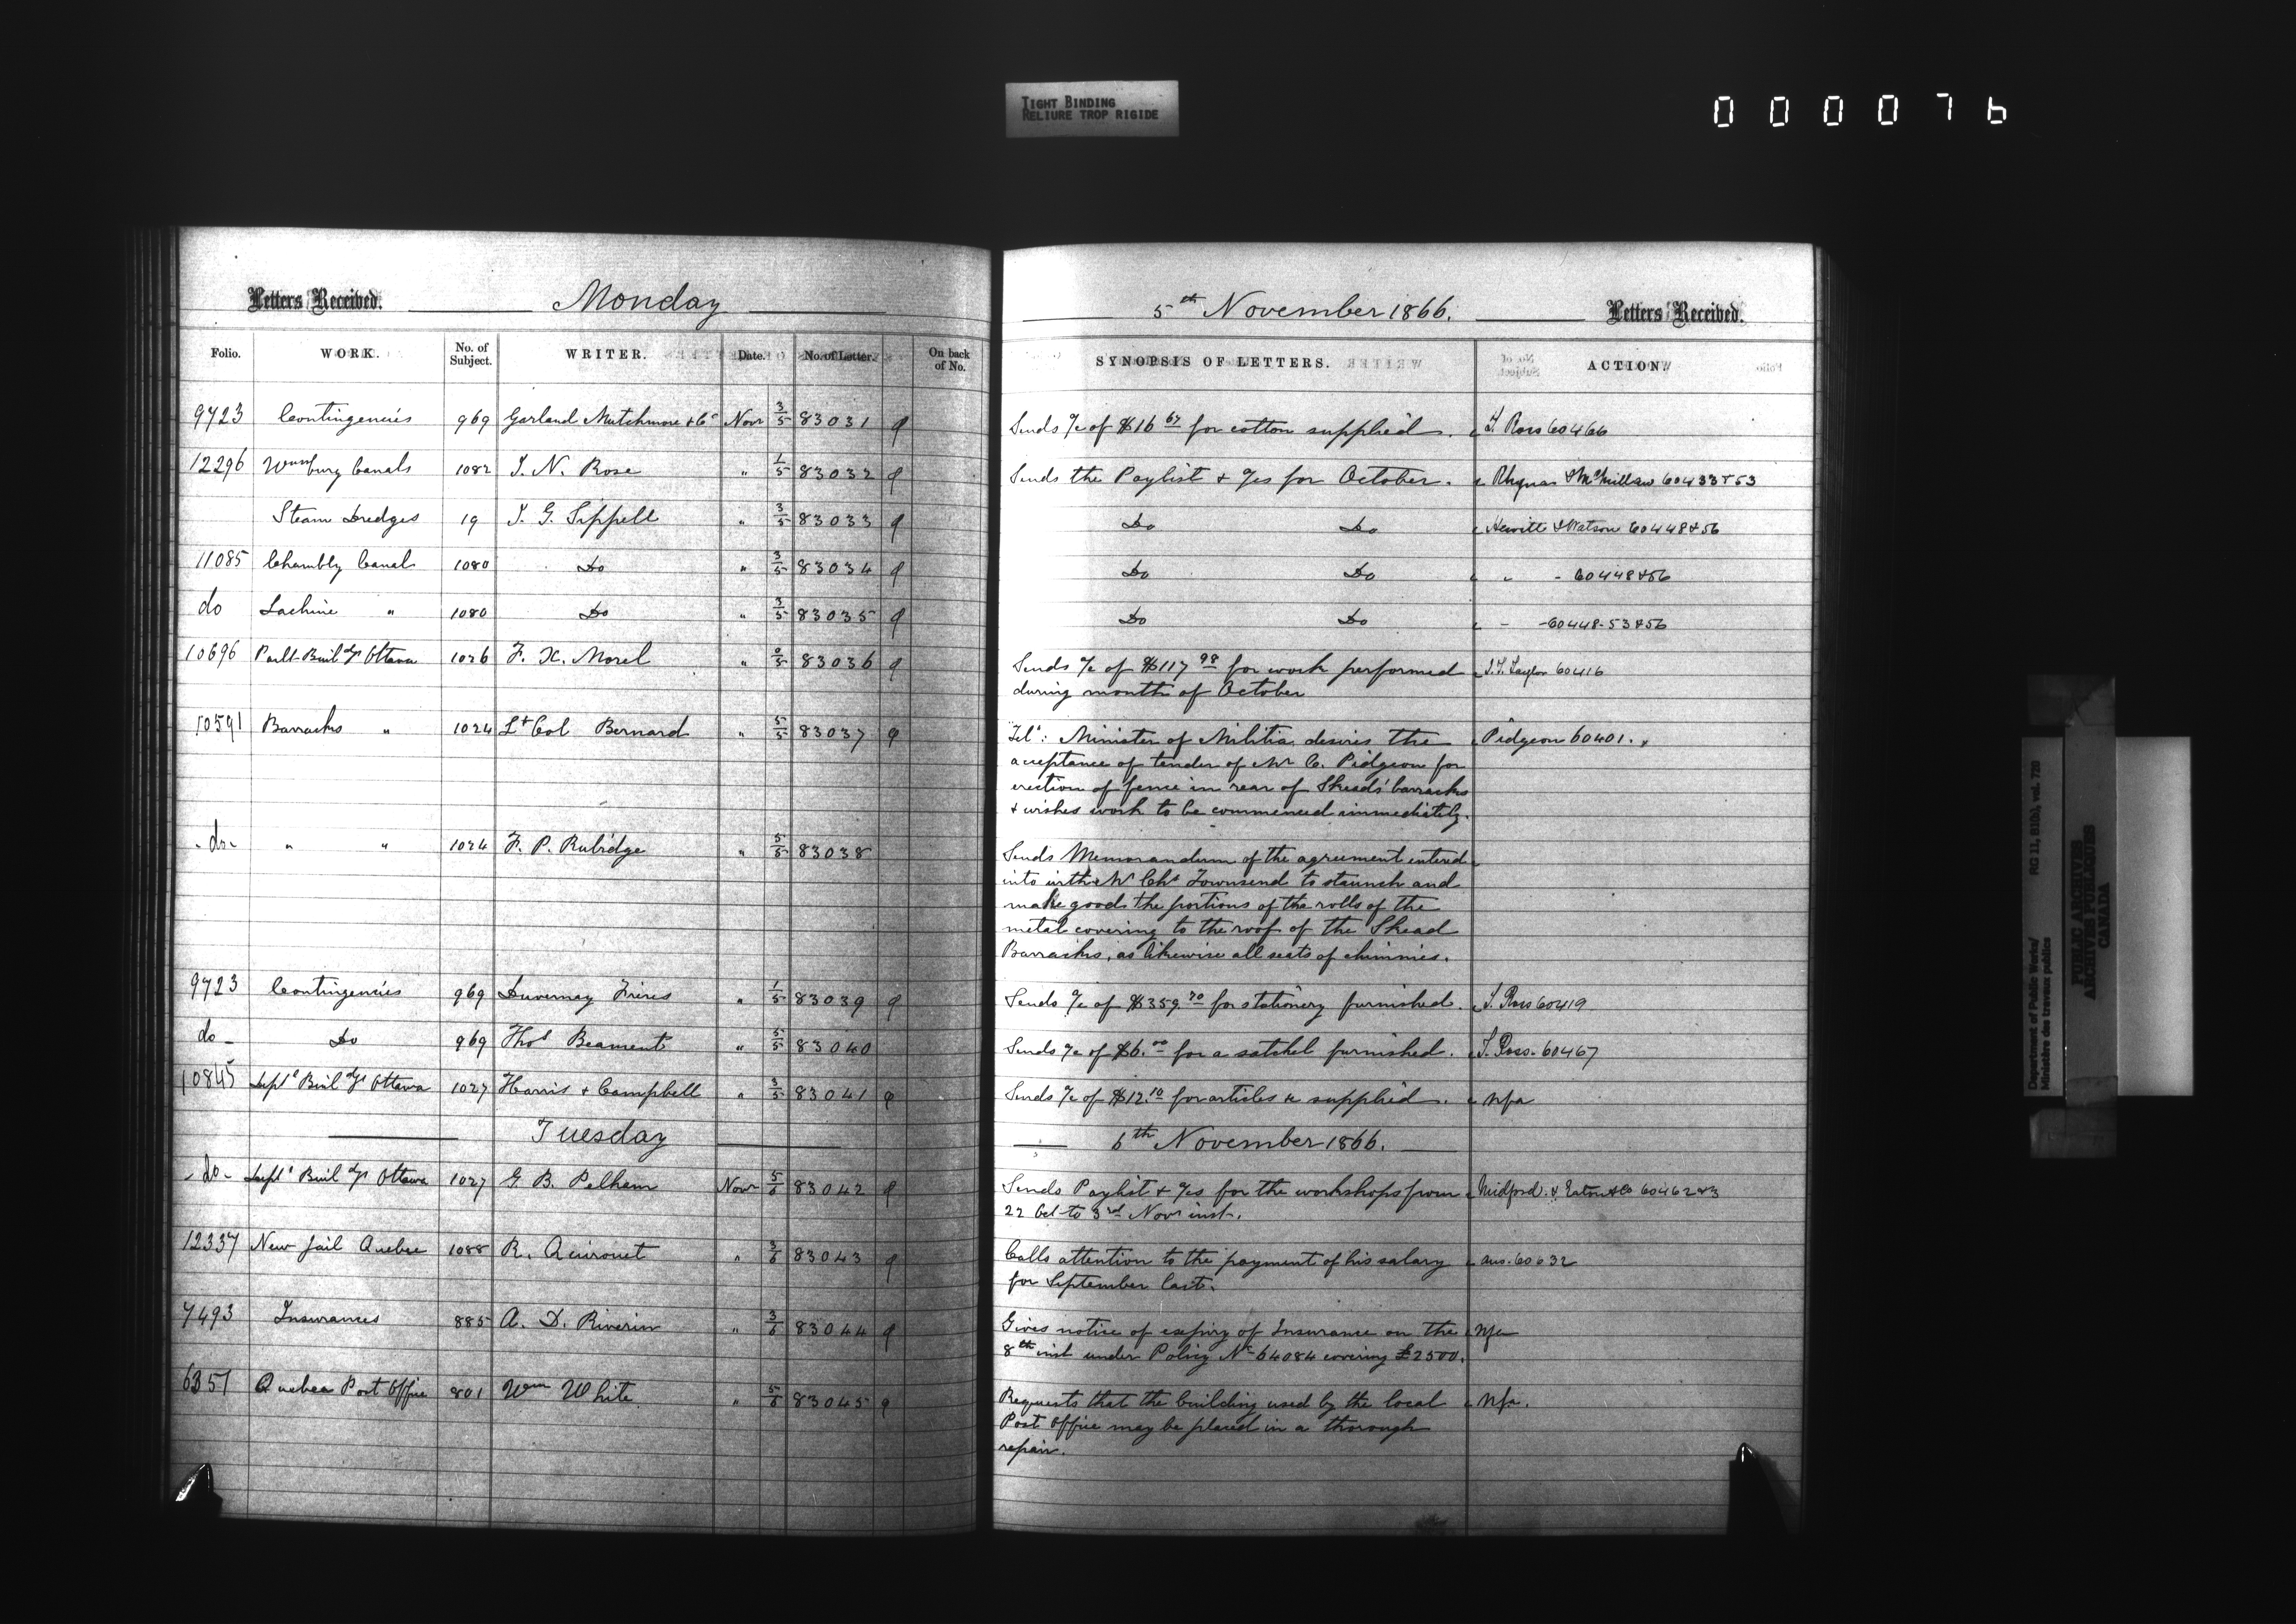 TIGHT BINDING
RELIURE TROP RIGIDE
000076
Letters Received. Monday
Folio. WORK. No. of Subject. WRITER. Date. No. of Letter. On back of No.
9723 Contingencies 969 Garland Mutchmore & Co Novr 3/5 83031
12296 Wmsburg Canals 1082 I. N. Rose " 1/5 83032
Steam Dredges 19 J. G. Sippell " 3/5 83033
11085 Chambly Canal 1080 Do " 3/5 83034
do Lachine " 1080 Do " 3/5 83035
10696 Parlt Buildgs Ottawa 1026 F. X. Morel " 83036
10591 Barracks " 1024 Lt Col Bernard " 5/5 83037
-do- " " 1024 F. P. Rubidge " 5/5 83038
9723 Contingencies 969 Duvernay Frères " 1/5 83039
do- Do 969 Thos Beament " 5/5 83040
10845 Deptl Buildgs Ottawa 1027 Harris & Campbell " 3/5 83041
Tuesday
-do- Deptl Buildgs Ottawa 1027 G. B. Pelham Novr 5/6 83042
12337 New Jail Quebec 1088 R. Quironet " 3/6 83043
7493 Insurances 885 A. D. Riverin " 3/6 83044
6351 Quebec Post Office 801 Wm White " 5/6 83045
5th November 1866. Letters Received.
SYNOPSIS OF LETTERS. ACTION
Sends a/c of $16 67 for cotton supplied. T. Ross 60466
Sends the Paylist & a/cs for October. McMillan 60433 & 53
Do Do Hewitt & Watson 60448 & 56
Do Do " - 60448 & 56
Do Do - -60448-53 & 56
Sends a/c of $117 98 for work performed J. F. Taylor 60416
during month of October
Tel: Minister of Militia desires the Pidgeon 60401.
acceptance of tender of Mr C. Pidgeon for
erection of fence in rear of Skead's barracks
& wishes work to be commenced immediately.
Sends Memorandum of the agreement entered
into with Mr Chs Townsend to staunch and
make good the portions of the rolls of the
metal covering to the roof of the Skead
Barracks, as likewise all seats of chimnies.
Sends a/c of $359.70 for stationery furnished. T. Ross 60419
Sends a/c of $6.00 for a satchel furnished. T. Ross. 60467
Sends a/c of $12.10 for articles &c supplied. nfa
6th November 1866.
Sends Paylist & a/cs for the workshops from Midford & Eaton & Co 60462 & 3
22 Oct to 3rd Novr inst.
Calls attention to the payment of his salary ans. 60632
for September last.
Gives notice of expiry of Insurance on the nfa
8th inst under Policy No 64084 covering £2500.
Requests that the building used by the local nfa.
Post Office may be placed in a thorough
repair.
Department of Public Works/ RG 11, B1(b), vol. 720
Ministère des travaux publics
PUBLIC ARCHIVES
ARCHIVES PUBLIQUES
CANADA